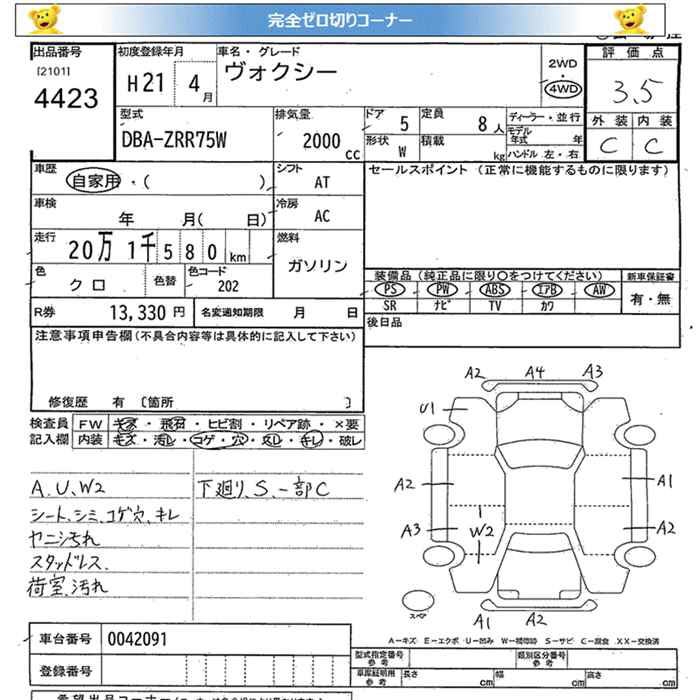 完全ゼロ切りコーナー
出品番号 初度登録年月 車名・グレード 評価点
[2101] H21 4月 ヴォクシー 2WD・4WD 3.5
4423
型式 排気量 ドア 5 定員 8人 ディーラー・並行 外装 内装
DBA-ZRR75W 2000cc 形状 W 積載 kg モデル年式 年 C C
ハンドル 左・右
車歴 自家用・( ) シフト AT セールスポイント (正常に機能するものに限ります)
車検 年 月( 日) 冷房 AC
走行 20万 1千580km 燃料 ガソリン
色 クロ 色替 色コード 202 装備品 (純正品に限り○をつけてください) 新車保証書
PS PW ABS エアB AW 有・無
SR ナビ TV カワ
R券 13,330円 名変通知期限 月 日 後日品
注意事項申告欄(不具合内容等は具体的に記入して下さい)
修復歴 有 〔箇所 〕
検査員 FW キズ・飛石・ヒビ割・リペア跡・×要
記入欄 内装 キズ・汚レ・コゲ・穴・スレ・キレ・破レ
A.U.W2 下廻り.S.一部C
シート.シミ.コゲ穴.キレ
ヤニ汚れ
スタッドレス.
荷室.汚れ
A2 A4 A3
U1
A2 A1
A3 W2 A2
スペア
A1 A2
A−キズ E−エクボ U−凹み W−補修跡 S−サビ C−腐食 XX−交換済
車台番号 0042091
登録番号
型式指定番号 参考 類別区分番号 参考
車庫証明用 参考 長さ cm 幅 cm 高さ cm